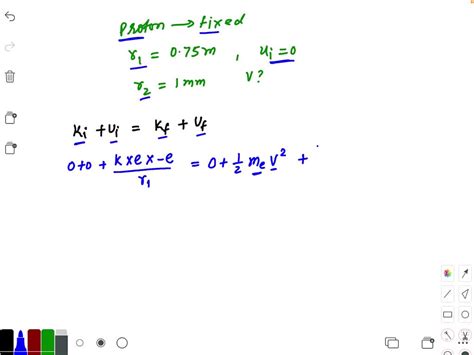 Proton → fixed
r₁ = 0.75m , u_i = 0
r₂ = 1mm V?
K_i + U_i = K_f + U_f
0+0 + (K×e×-e)/r₁ = 0 + ½ m_e v² +